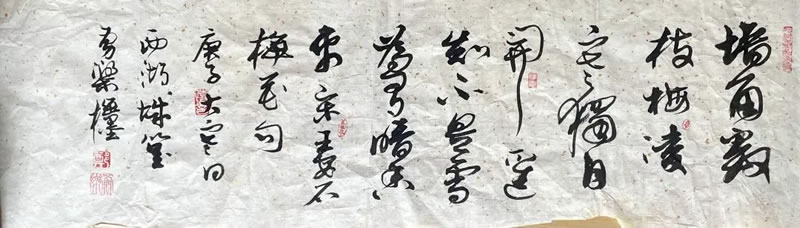 墙角數
枝梅凌
寒獨自
開遥
知不是雪
為有暗香
來宋王安石
梅花句
庚子大寒日
西湖城